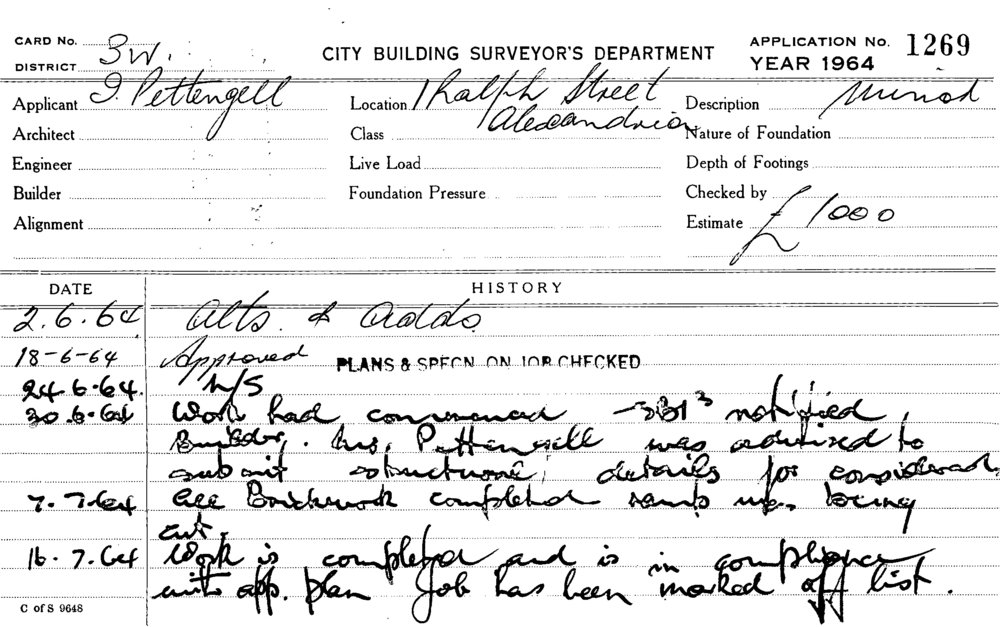 CARD No. 3W.
DISTRICT
CITY BUILDING SURVEYOR'S DEPARTMENT
APPLICATION No. 1269
YEAR 1964
Applicant I. Pettengell
Location 1 Ralph Street
Alexandria
Description Minor
Architect
Class
Nature of Foundation
Engineer
Live Load
Depth of Footings
Builder
Foundation Pressure
Checked by
Alignment
Estimate £ 1000
DATE HISTORY
2.6.64 Alts. & Adds.
18-6-64 Approved PLANS & SPECN. ON JOB CHECKED
24.6.64. N/S
30.6.64 Work had commenced notified
Builder. Pettengell was advised to
submit structural details for
7.7.64 All Brickwork completed being
cut.
16.7.64 Work is completed and is in compliance
with app. plan Job has been marked off list.
C of S 9648